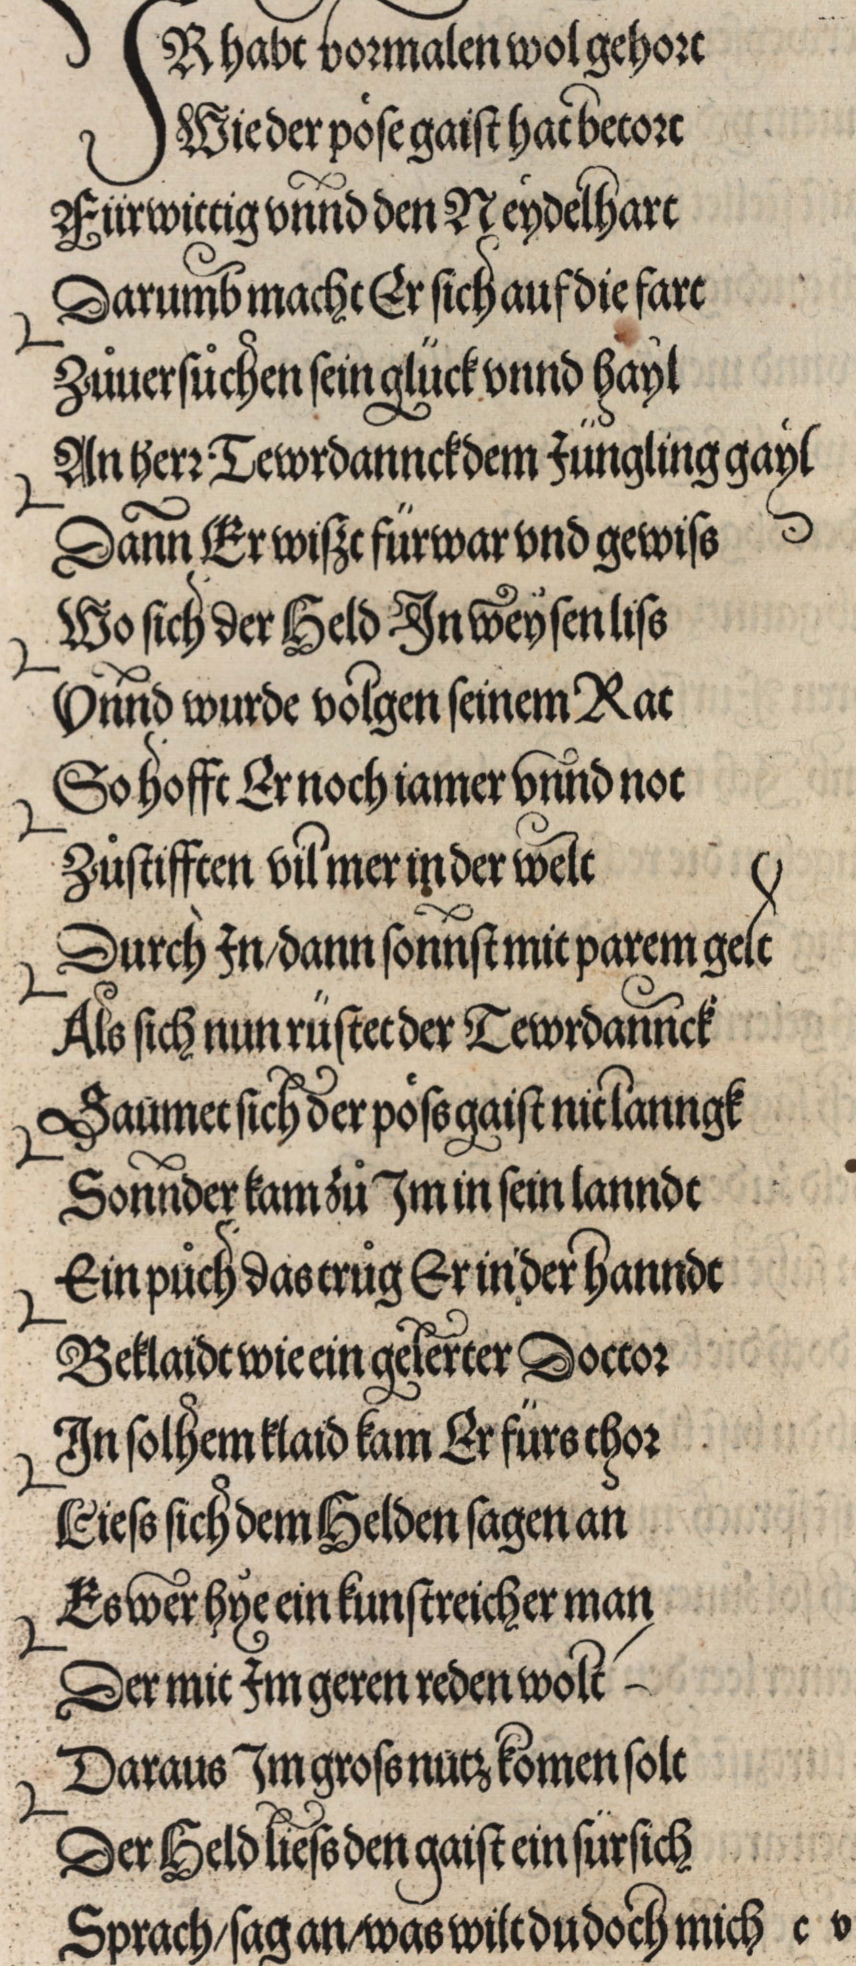 IR habt vormalen wol gehort
Wie der pöse gaist hat betort
Fürwittig vnnd den Neydelhart
Darumb macht Er sich auf die fart
Zůuersůchen sein glück vnnd hayl
An herr Tewrdannck dem Jüngling gayl
Dann Er wißt fürwar vnd gewiss
Wo sich der Held In weysen liss
Vnnd wurde volgen seinem Rat
So hofft Er noch iamer vnnd not
Zůstifften vil mer in der welt
Durch In/dann sonnst mit parem gelt
Als sich nun rüstet der Tewrdannck
Saumet sich der pöss gaist nit lanngk
Sonnder kam zů Im in sein lanndt
Ein půch das trůg Er in der hanndt
Beklaidt wie ein gelerter Doctor
In solhem klaid kam Er fürs thor
Liess sich dem Helden sagen an
Es wer hye ein kunstreicher man
Der mit Im geren reden wolt
Daraus Im gross nutz komen solt
Der Held liess den gaist ein für sich
Sprach/sag an/was wilt du doch mich c v